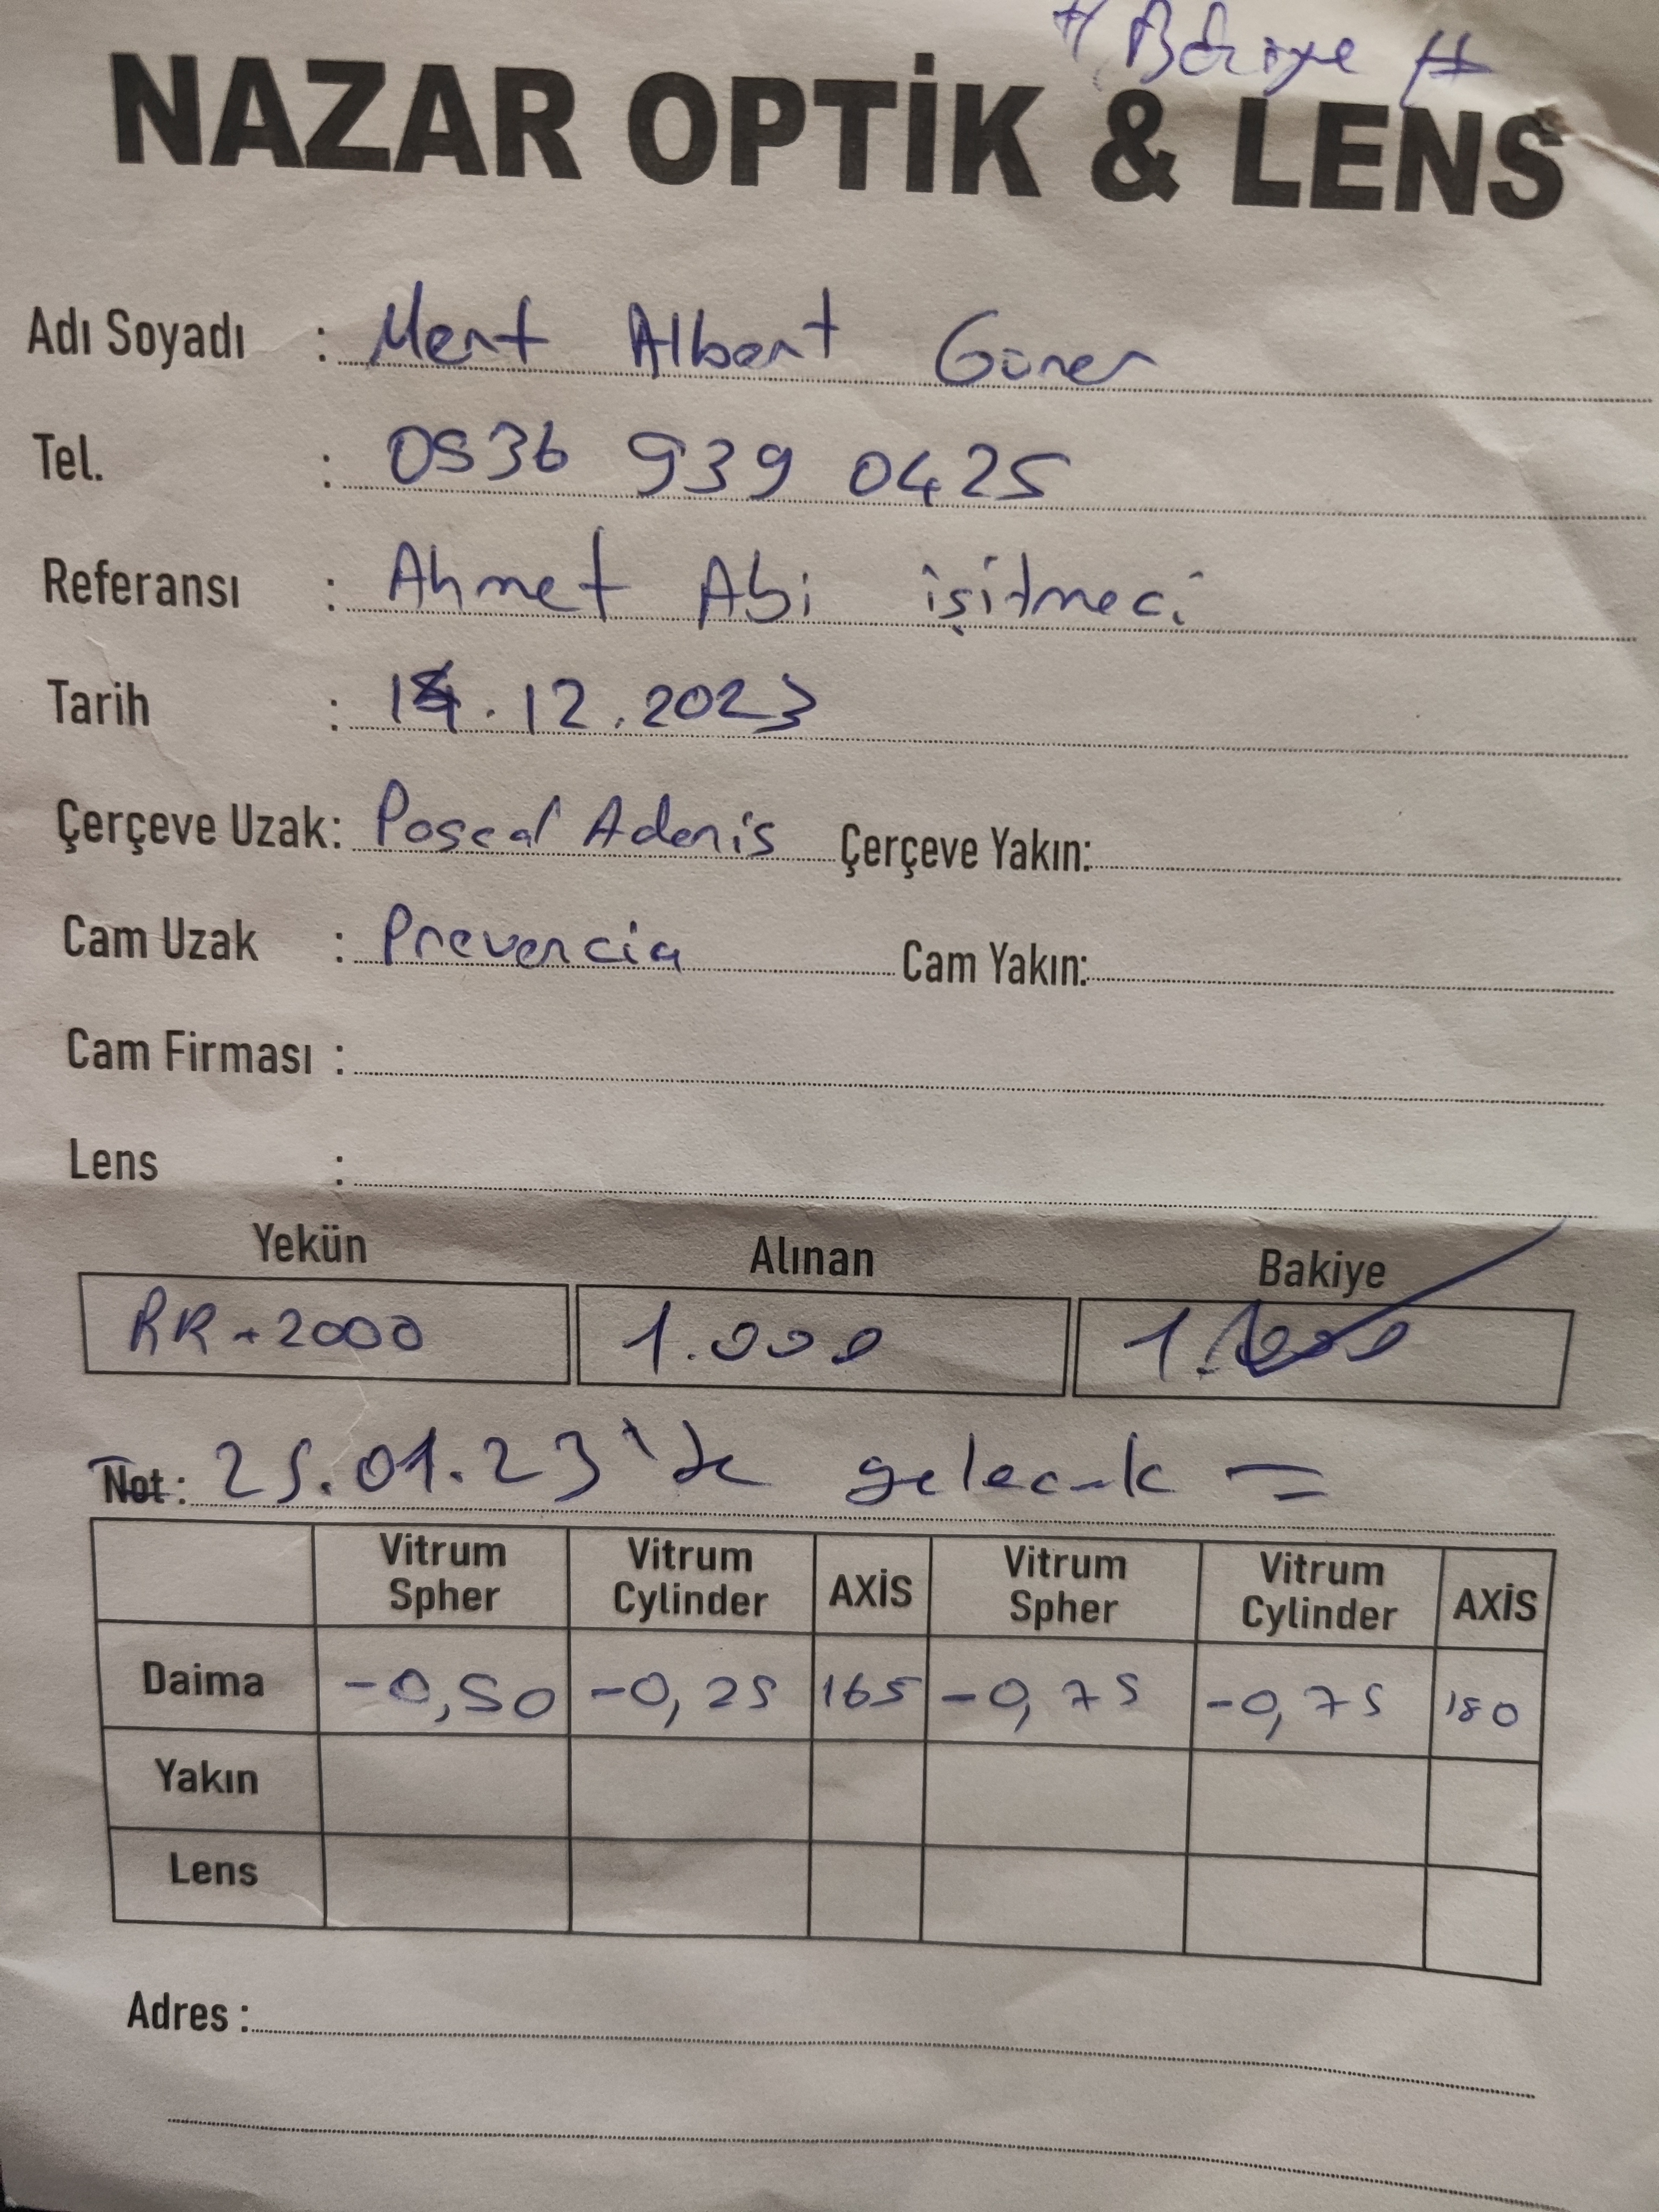 NAZAR OPTİK & LENS
Adı Soyadı : Mert Albert Güner
Tel. : 0536 939 0425
Referansı : Ahmet Abi işitmeci
Tarih : 14.12.2023
Çerçeve Uzak: Poscal Adenis Çerçeve Yakın:
Cam Uzak : Prevencia Cam Yakın:
Cam Firması :
Lens :
Yekün Alınan Bakiye
RR + 2000 1.000 1.000
Not: 25.01.23 'te gelecek =
Vitrum Spher Vitrum Cylinder AXİS Vitrum Spher Vitrum Cylinder AXİS
Daima -0,50 -0,25 165 -0,75 -0,75 180
Yakın
Lens
Adres :